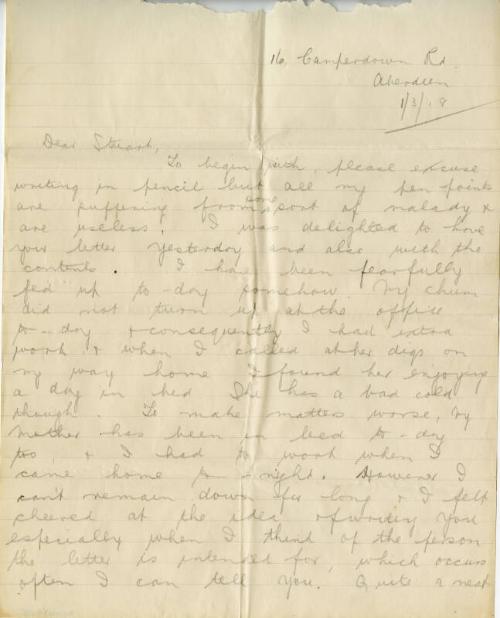 16, Camperdown Rd.
Aberdeen
1/3/18
Dear Stuart,
To begin with, please excuse
writing in pencil but all my pen points
are suffering from some sort of malady &
are useless. I was delighted to have
your letter yesterday and also with the
contents. I have been fearfully
fed up to-day somehow. My chum
did not turn up at the office
to-day & consequently I had extra
work & when I called at her digs on
my way home I found her enjoying
a day in bed. She has a bad cold
though. To make matters worse, my
mother has been in bed to-day
too, & I had to work when I
came home to-night. However I
can't remain down for long & I felt
cheered at the idea of writing you
especially when I think of the person
the letter is intended for, which occurs
often I can tell you. Quite a neat